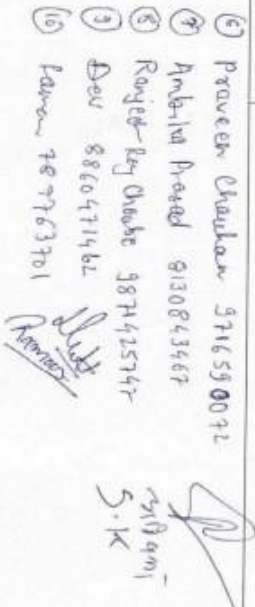 ⑥ Praveen Chauhan 9716590072
⑦ Ambika Prasad 8130843467
⑧ Ranjeet Roy Choube 9871425747
⑨ Dev 8860471462
⑩ Raman 787763701
Raman
S.K